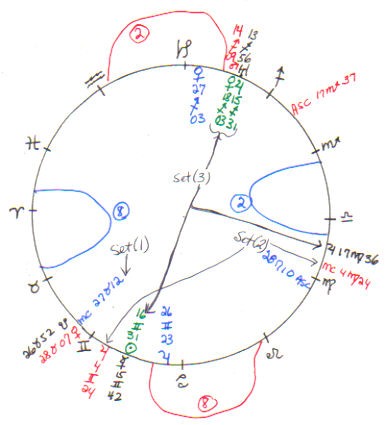 ②
♑
♒
♐
14
♐
13
♐
56
♀
27
♐
03
ASC 17♏37
♓
♏
Set(3)
♈
⑧
②
♎
Set(1)
Set(2)
♃17♍36
mc 4♍24
♍
♉
mc 27♉12
16
♊
31
☉
26
♊
23
26♉52 ☿
28♉07 ♀
♊
4
♊
24
15
♊
42
♋
♌
⑧